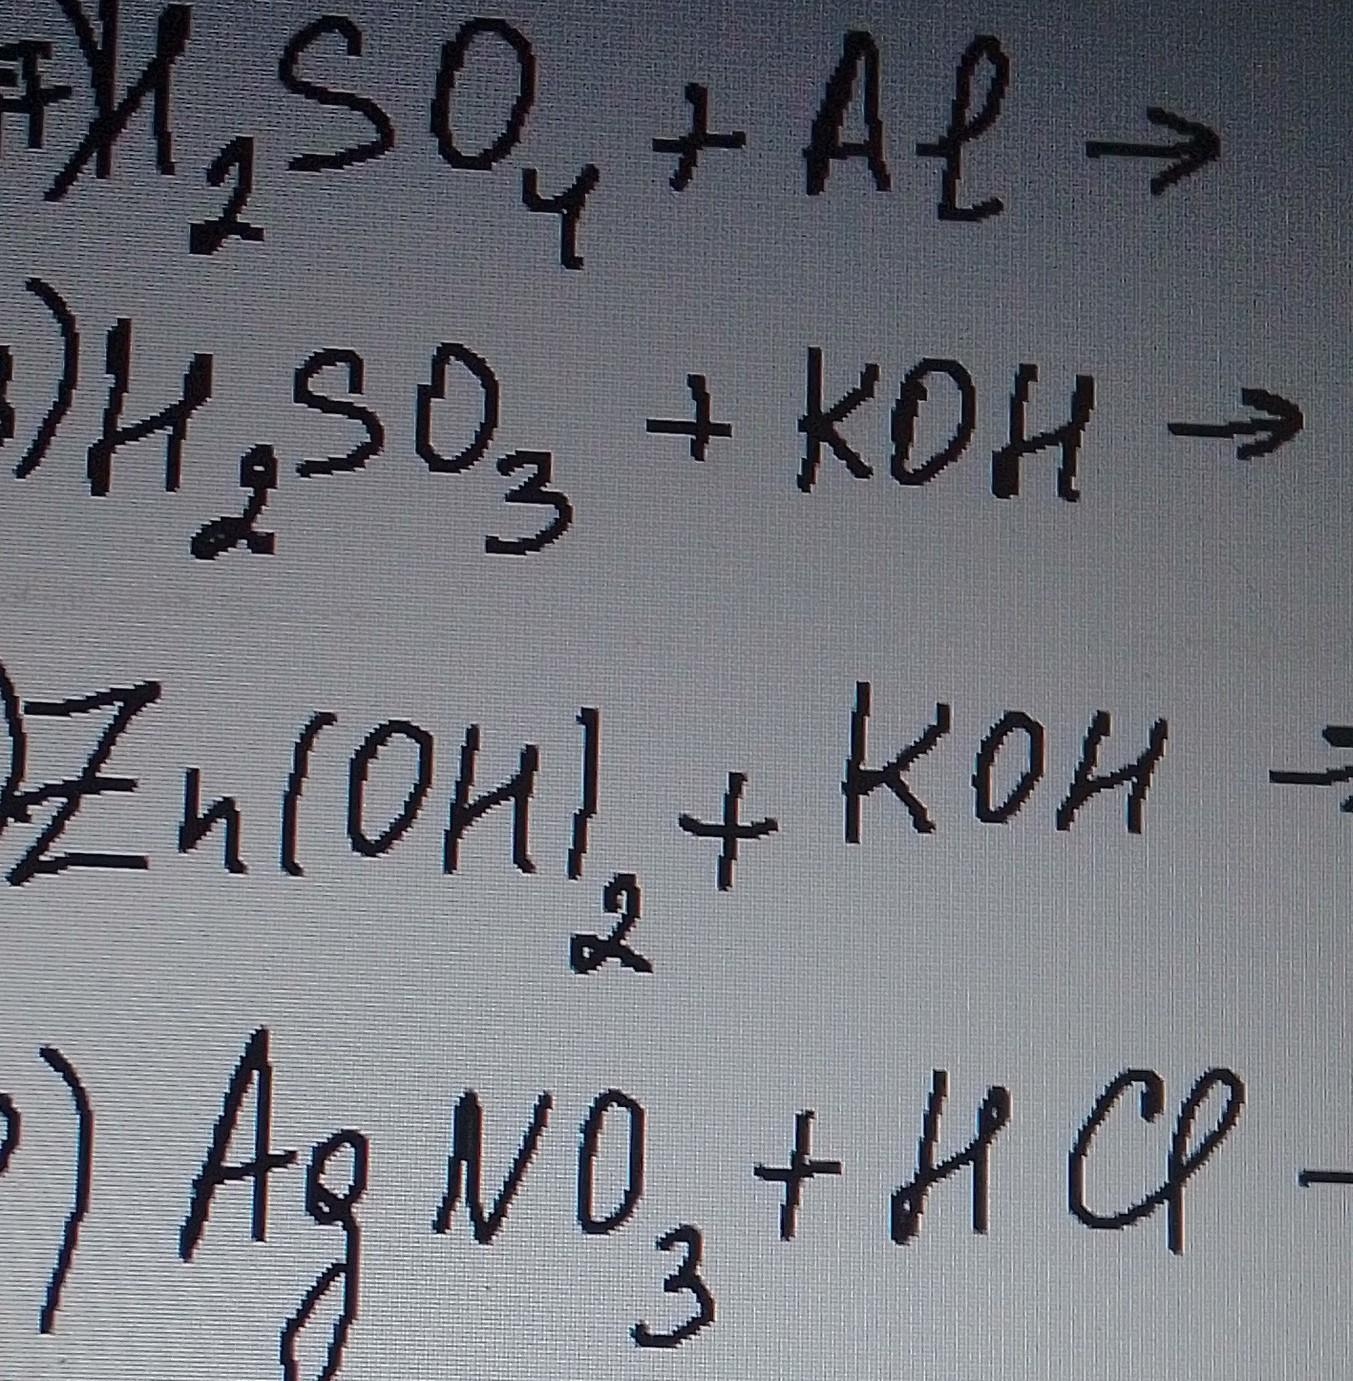 7) H₂SO₄ + Al →
) H₂SO₃ + KOH →
) Zn(OH)₂ + KOH →
) AgNO₃ + HCl -